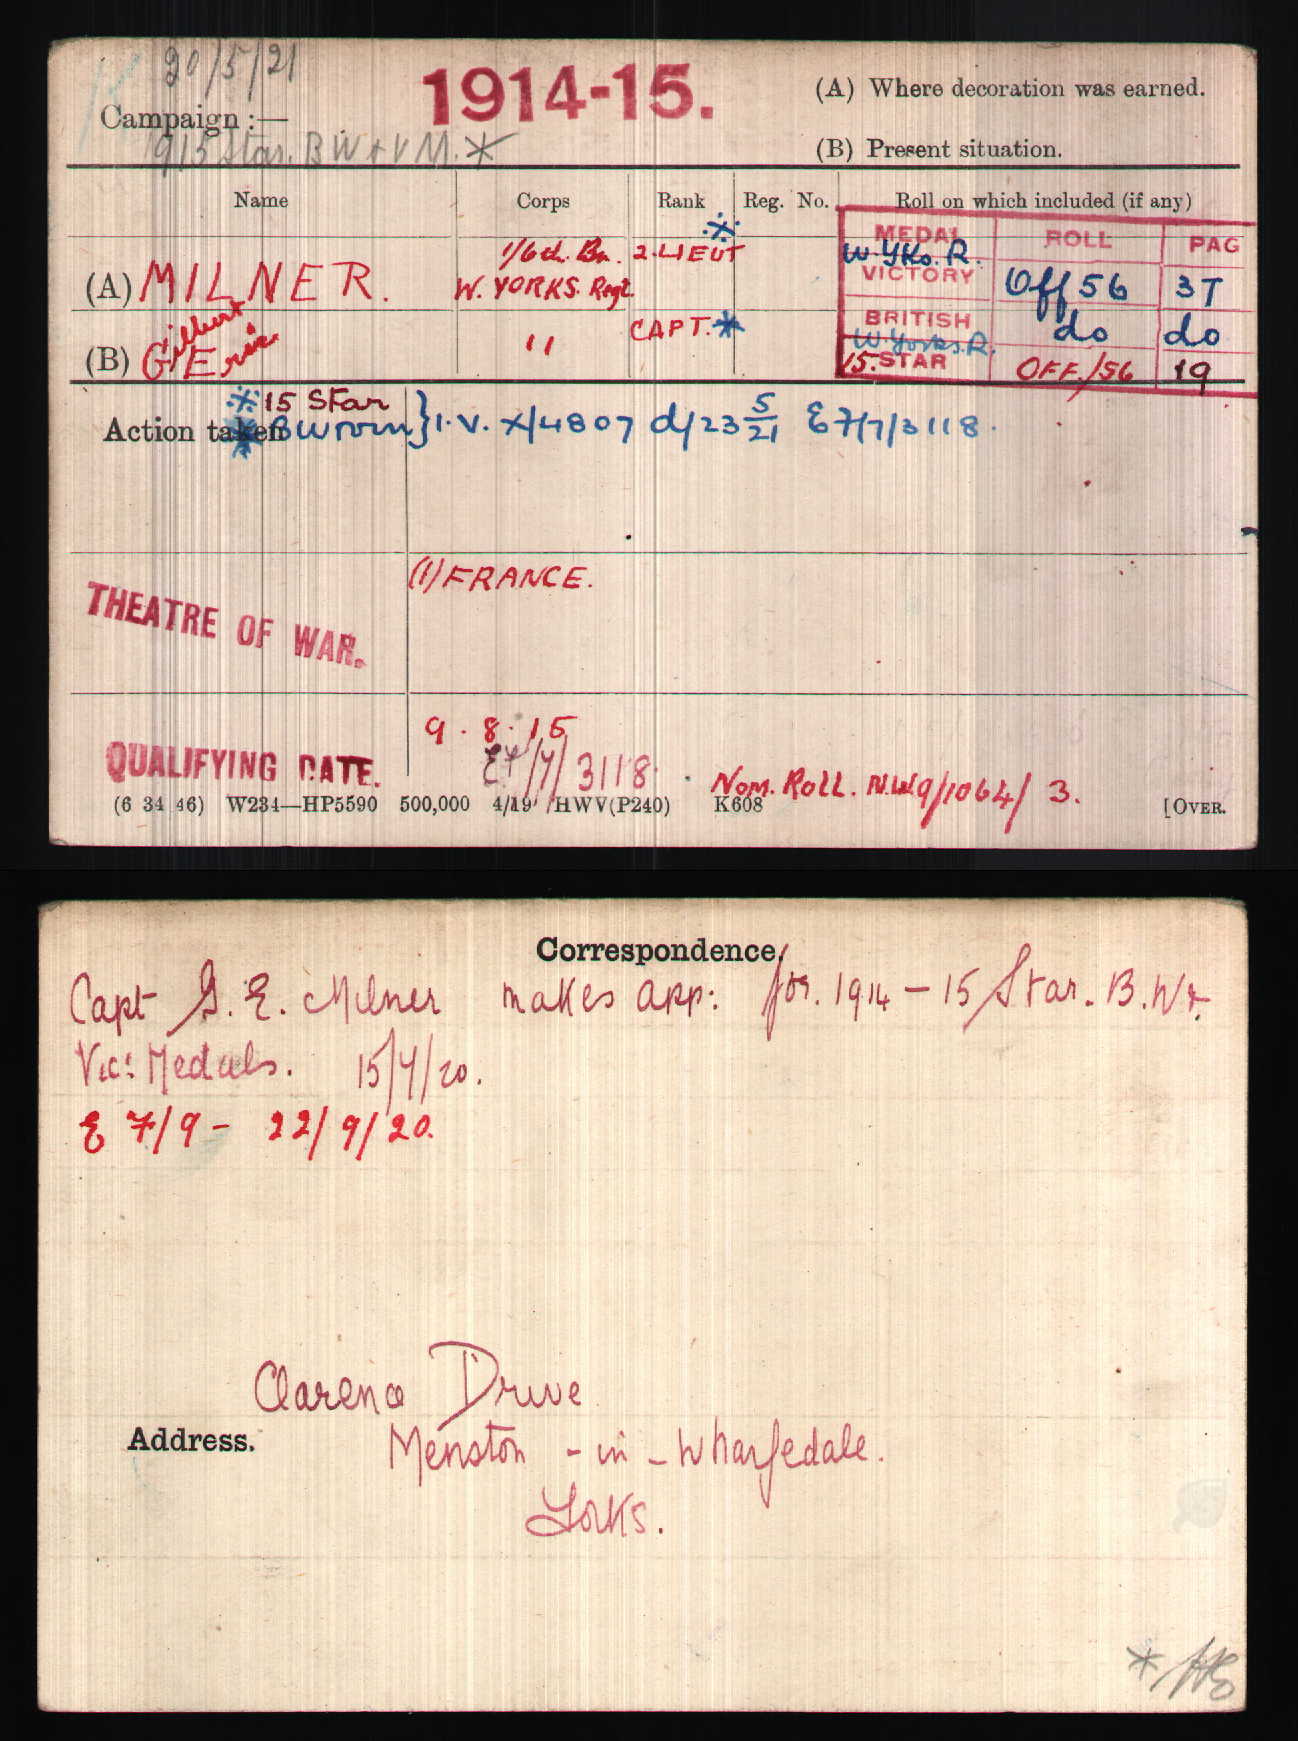 20/5/21
1914-15.
Campaign :—
(A) Where decoration was earned.
915 Star. BW & VM. *
(B) Present situation.
Name Corps Rank Reg. No. Roll on which included (if any)
MEDAL ROLL PAG
(A) MILNER. 1/6th. Bn. 2.LIEUT
W. YORKS. Regt.
W. Yks. R.
VICTORY Off 56 37
Gilbert
(B) G. Eric " CAPT. *
BRITISH do do
W. Yorks. R.
15. STAR OFF./56 19
* 15 Star
Action taken * BW } I.V. X/4807 d/23 5/21 E7/7/3118.
THEATRE OF WAR. (1) FRANCE.
QUALIFYING DATE. 9.8.15
E7/7/3118. Nom. Roll. N.W.9/1064/3.
(6 34 46) W234—HP5590 500,000 4/19 HWV(P240) K608 [OVER.
Correspondence.
Capt G. E. Milner makes app: for. 1914-15 Star. B.W &
Vic: Medals. 15/4/20.
E 7/9 - 22/9/20.
Clarence Drive
Address. Menston - in - Wharfedale.
Yorks.
*